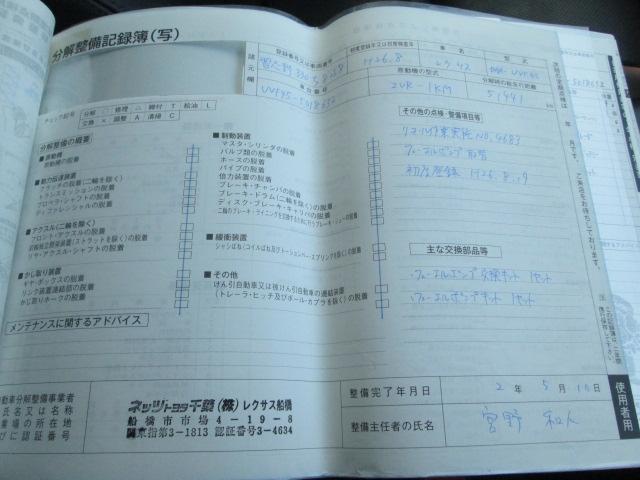 分解整備記録簿(写)
諸元欄
登録番号又は車両番号
初度登録年又は初度検査年
車名
型式
H26.8
レクサス
車台番号
原動機の型式
分解時の総走行距離
UVF45-5018652
2UR-1KM
51441
チェック記号
分解 ○ 修理 △ 締付 T 給油 L
交換 × 調整 A 清掃 C
分解整備の概要
■原動機
原動機の脱着
■動力伝達装置
クラッチの脱着(二輪を除く)
トランスミッションの脱着
プロペラ・シャフトの脱着
ディファレンシャルの脱着
■アクスル(二輪を除く)
フロント・アクスルの脱着
前輪独立懸架装置(ストラットを除く)の脱着
リヤ・アクスル・シャフトの脱着
■かじ取り装置
ギヤ・ボックスの脱着
リンク装置連結部の脱着
かじ取りホークの脱着
■制動装置
マスタ・シリンダの脱着
バルブ類の脱着
ホースの脱着
パイプの脱着
倍力装置の脱着
ブレーキ・チャンバの脱着
ブレーキ・ドラム(二輪を除く)の脱着
ディスク・ブレーキ・キャリパの脱着
二輪のブレーキ・ライニングを交換するために行うブレーキ・シューの脱着
■緩衝装置
シャシばね(コイルばね及びトーションバースプリングを除く)の脱着
■その他
けん引自動車又は被けん引自動車の連結装置
(トレーラ・ヒッチ及びボール・カプラを除く)の脱着
その他の点検・整備項目等
リコール作業実施 No.4683
フューエルポンプ取替
初度登録 H26.8.19
主な交換部品等
フューエルポンプ交換キット 1セット
フューエルポンプキット 1セット
メンテナンスに関するアドバイス
ネッツトヨタ千葉(株)レクサス船橋
船橋市市場4-19-8
関東指第3-1813 認証番号3-4634
整備完了年月日
2年5月10日
整備主任者の氏名
宮野 和人
使用者用
ご来店をお待ちしております。